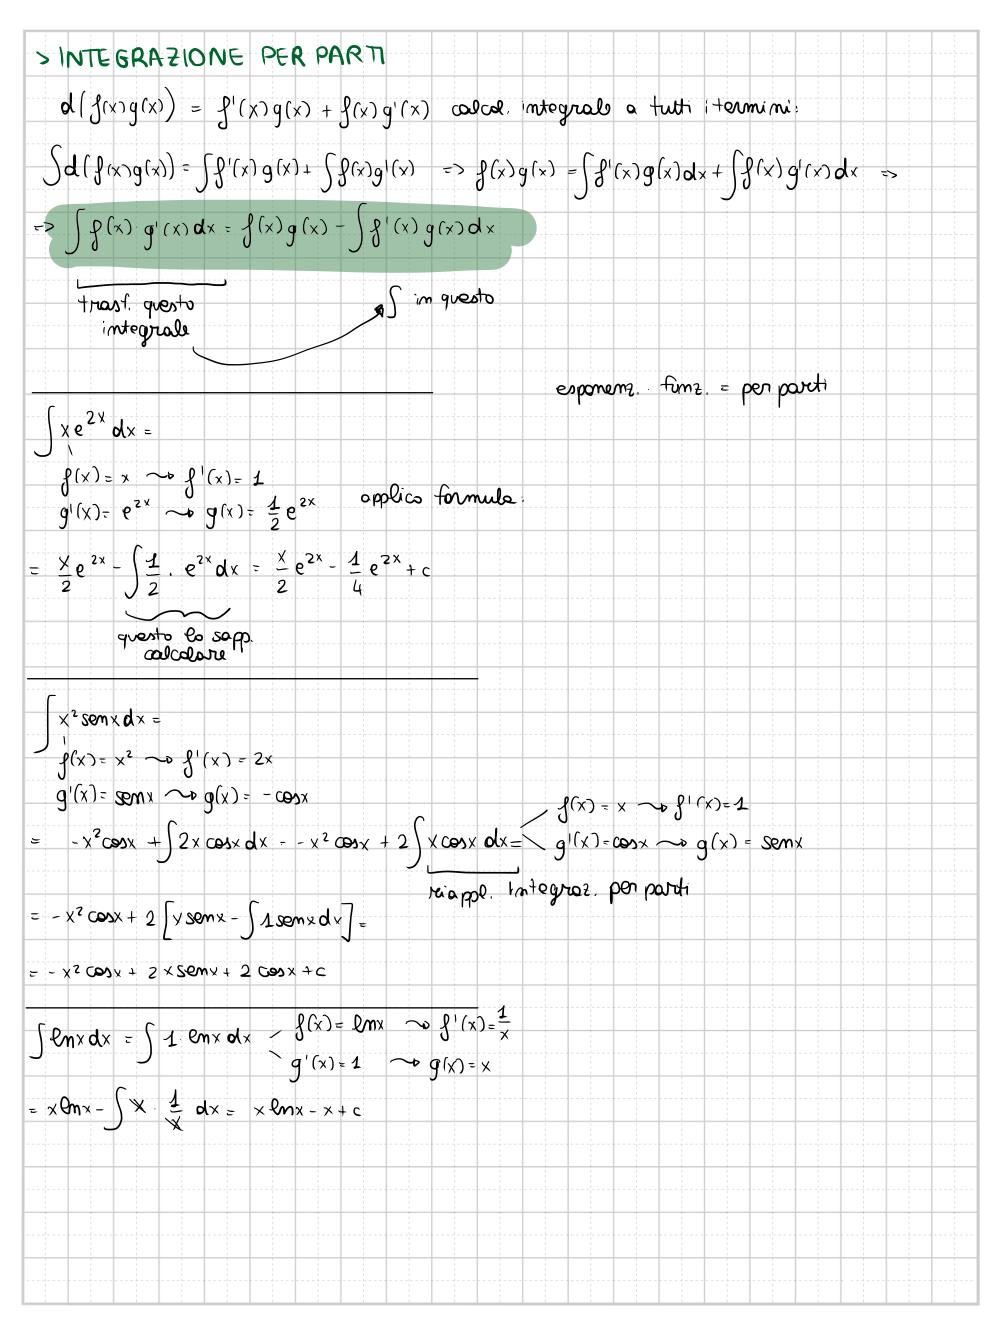 > INTEGRAZIONE PER PARTI
d(f(x)g(x)) = f'(x)g(x) + f(x)g'(x) calcol. integrale a tutti i termini:
∫d(f(x)g(x)) = ∫f'(x)g(x) + ∫f(x)g'(x) => f(x)g(x) = ∫f'(x)g(x)dx + ∫f(x)g'(x)dx =>
=> ∫f(x)·g'(x)dx = f(x)g(x) - ∫f'(x)g(x)dx
trasf. questo
integrale
∫ in questo
esponenz. · funz. = per parti
∫xe^{2x} dx =
f(x) = x ⤳ f'(x) = 1
g'(x) = e^{2x} ⤳ g(x) = 1/2 e^{2x} applico formula:
= x/2 e^{2x} - ∫1/2 · e^{2x}dx = x/2 e^{2x} - 1/4 e^{2x} + c
questo lo sapp.
calcolare
∫x² senx dx =
f(x) = x² ⤳ f'(x) = 2x
g'(x) = senx ⤳ g(x) = -cosx
= -x²cosx + ∫2x cosx dx = -x² cosx + 2∫x cosx dx =
f(x) = x ⤳ f'(x) = 1
g'(x) = cosx ⤳ g(x) = senx
riappl. integraz. per parti
= -x² cosx + 2[x senx - ∫1 senx dx] =
= -x² cosx + 2x senx + 2 cosx + c
∫lnx dx = ∫1· lnx dx
f(x) = lnx ⤳ f'(x) = 1/x
g'(x) = 1 ⤳ g(x) = x
= x lnx - ∫x · 1/x dx = x lnx - x + c